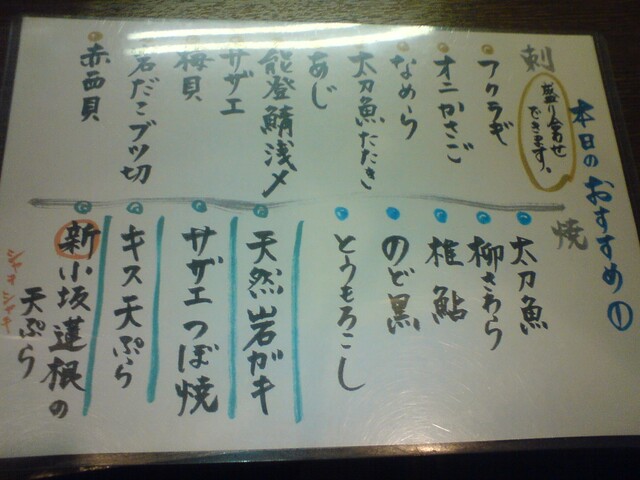 本日のおすすめ①
刺
盛り合わせできます。
フクラギ
オニかさご
なめら
太刀魚たたき
あじ
能登鯖浅〆
サザエ
梅貝
岩だこブツ切
赤西貝
焼
太刀魚
柳さわら
稚鮎
のど黒
とうもろこし
天然岩ガキ
サザエつぼ焼
キス天ぷら
新小坂蓮根の
シャキシャキ
天ぷら